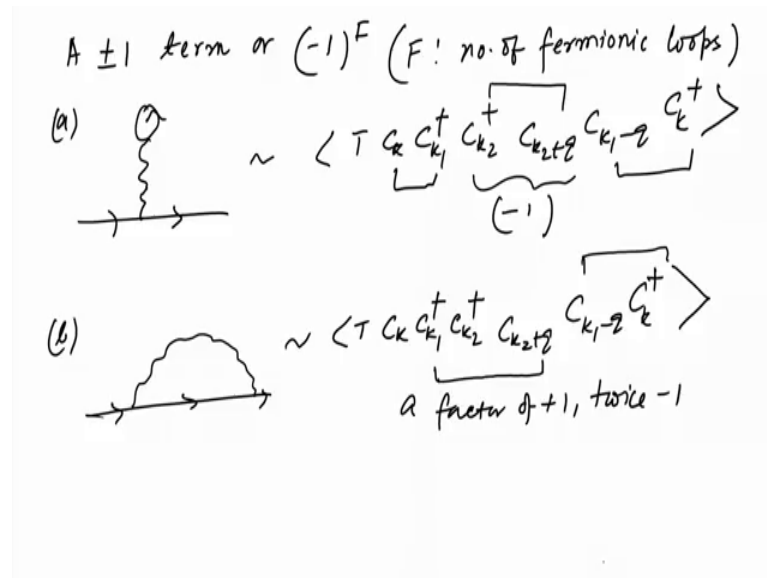 A ±1 term or (-1)^F (F: no. of fermionic loops)
(a) ~ < T C_k C_{k_1}^† C_{k_2}^† C_{k_2+q} C_{k_1-q} C_k^† >
(-1)
(b) ~ < T C_k C_{k_1}^† C_{k_2}^† C_{k_2+q} C_{k_1-q} C_k^† >
a factor of +1, twice -1